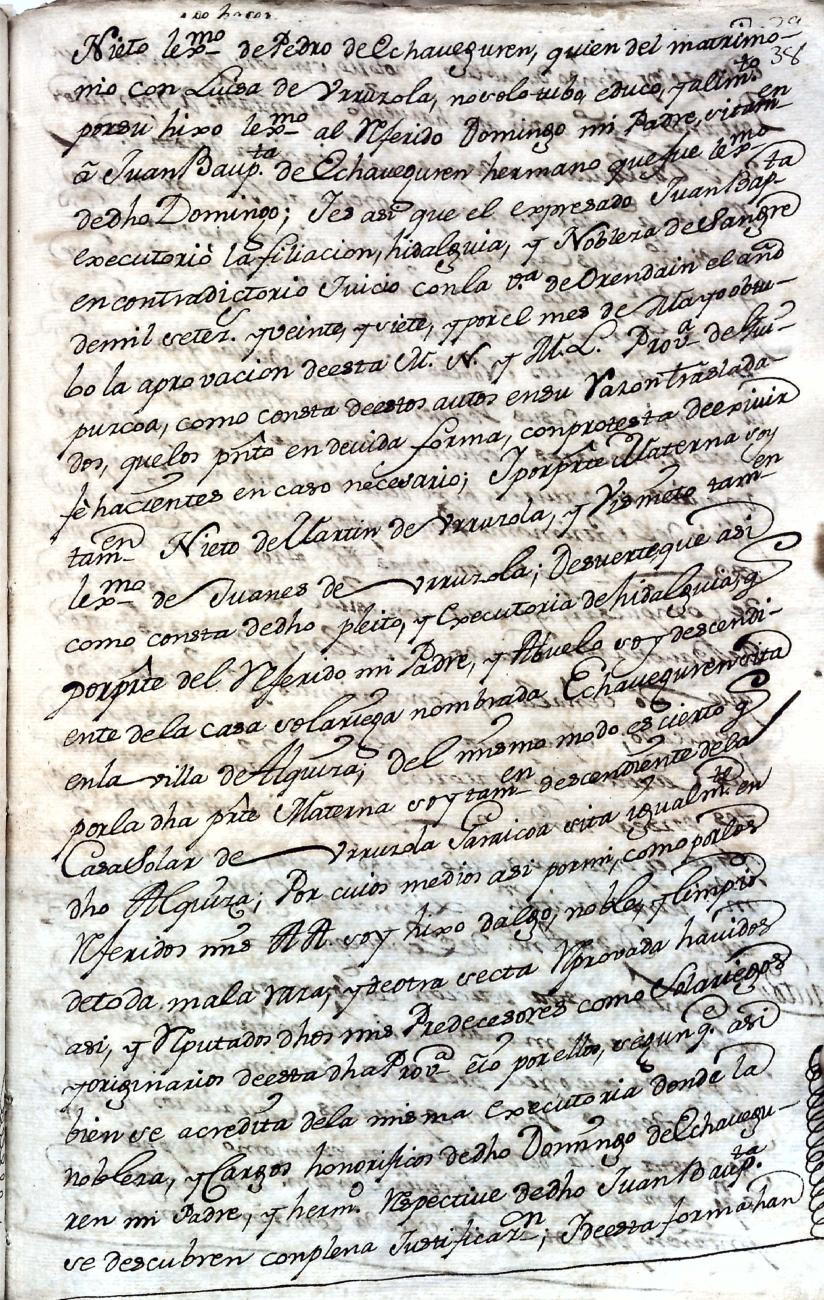 38
Nieto lexmo de Pedro de Echaveguren, quien del matrimo-
nio con Luisa de Vrruzola, no solo tubo, educo, y alimto
por su hixo lexmo al Rferido Domingo mi Padre, si tamen
â Juan Baupta. de Echaveguren hermano que fue lexmo
de dho Domingo; Ies asi que el expresado Juan Bapta
executoriò la filiacion, hidalguia, y Nobleza de Sangre
en contradictorio Juicio con la va. de Orendain el año
de mil setezs. y veinte, y siete, y por el mes de Mayo obtu-
bo la aprovacion de esta M. N. y M. L. Prova de Gui-
puzcoa, como consta de estos autos en su razon traslada-
dos, que los pñto en devida forma, con protesta de exivir
fèhacientes en caso necesario; I por pr̃te Materna soy
tamen Nieto de Martin de Vrruzola, y Visnieto tamen
lexmo de Juanes de Vrruzola; De suerte que asi
como consta de dho pleito, y executoria de hidalguia, q̃
por pr̃te del Rferido mi Padre, y Abuelo soy descendi-
ente de la casa solariega nombrada Echaveguren sita
en la villa de Alquiza; del mismo modo es cierto q̃
por la dha pr̃te Materna soy tamen descendiente de la
Casa Solar de Vrruzola Garaicoa sita igualmte en
dho Alquiza; Por cuios medios asi por mi, como por los
Rferidos mis AA. soy hixo dalgo, noble, y limpio
de toda mala raza, y de otra secta Rprovada havidos
asi, y Rputados dhos mis Predecesores como Solariegos
y originarios de esta dha Prova èio por ellos, segun q̃. asi
bien se acredita de la misma executoria donde la
nobleza, y Cargos honorificos de dho Domingo de Echavegu-
ren mi Padre, y hermo. Rspective de dho Juan Baupta.
se descubren con plena Justificazn; I de esta forma han